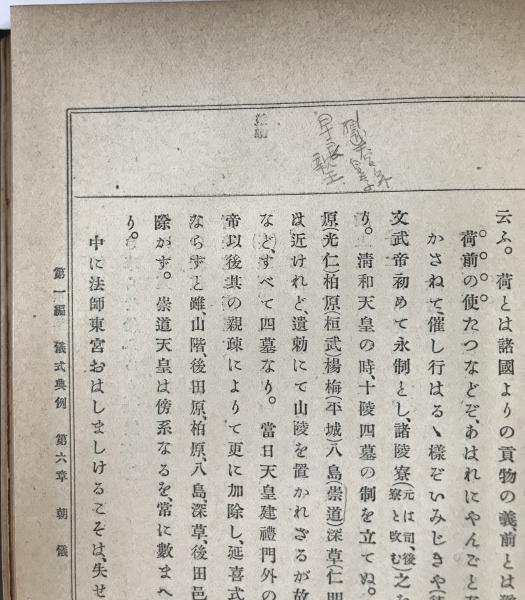 云ふ。荷とは諸國よりの貢物の義、前とは
荷前の使たつなどぞ、あはれにやんごと
かさねて、催し行はるゝ樣ぞいみじきや
文武帝初めて永制とし、諸陵寮(元は司、後寮と改む)之
り。淸和天皇の時、十陵四墓の制を立てぬ。
原(光仁)柏原(桓武)楊梅(平城)八島(崇道)深草(仁明
は近けれど、遺勅にて山陵を置かれざるが故
など、すべて四墓なり。當日天皇建禮門外の
帝以後其の親疎によりて更に加除し、延喜式
ならずと雖、山階、後田原、柏原、八島、深草、後田邑
除かず。崇道天皇は傍系なるを、常に數まへ
り。
中に法師東宮おはしましけるこそは、失せ
早良親王
第一編 儀式典例 第六章 朝儀